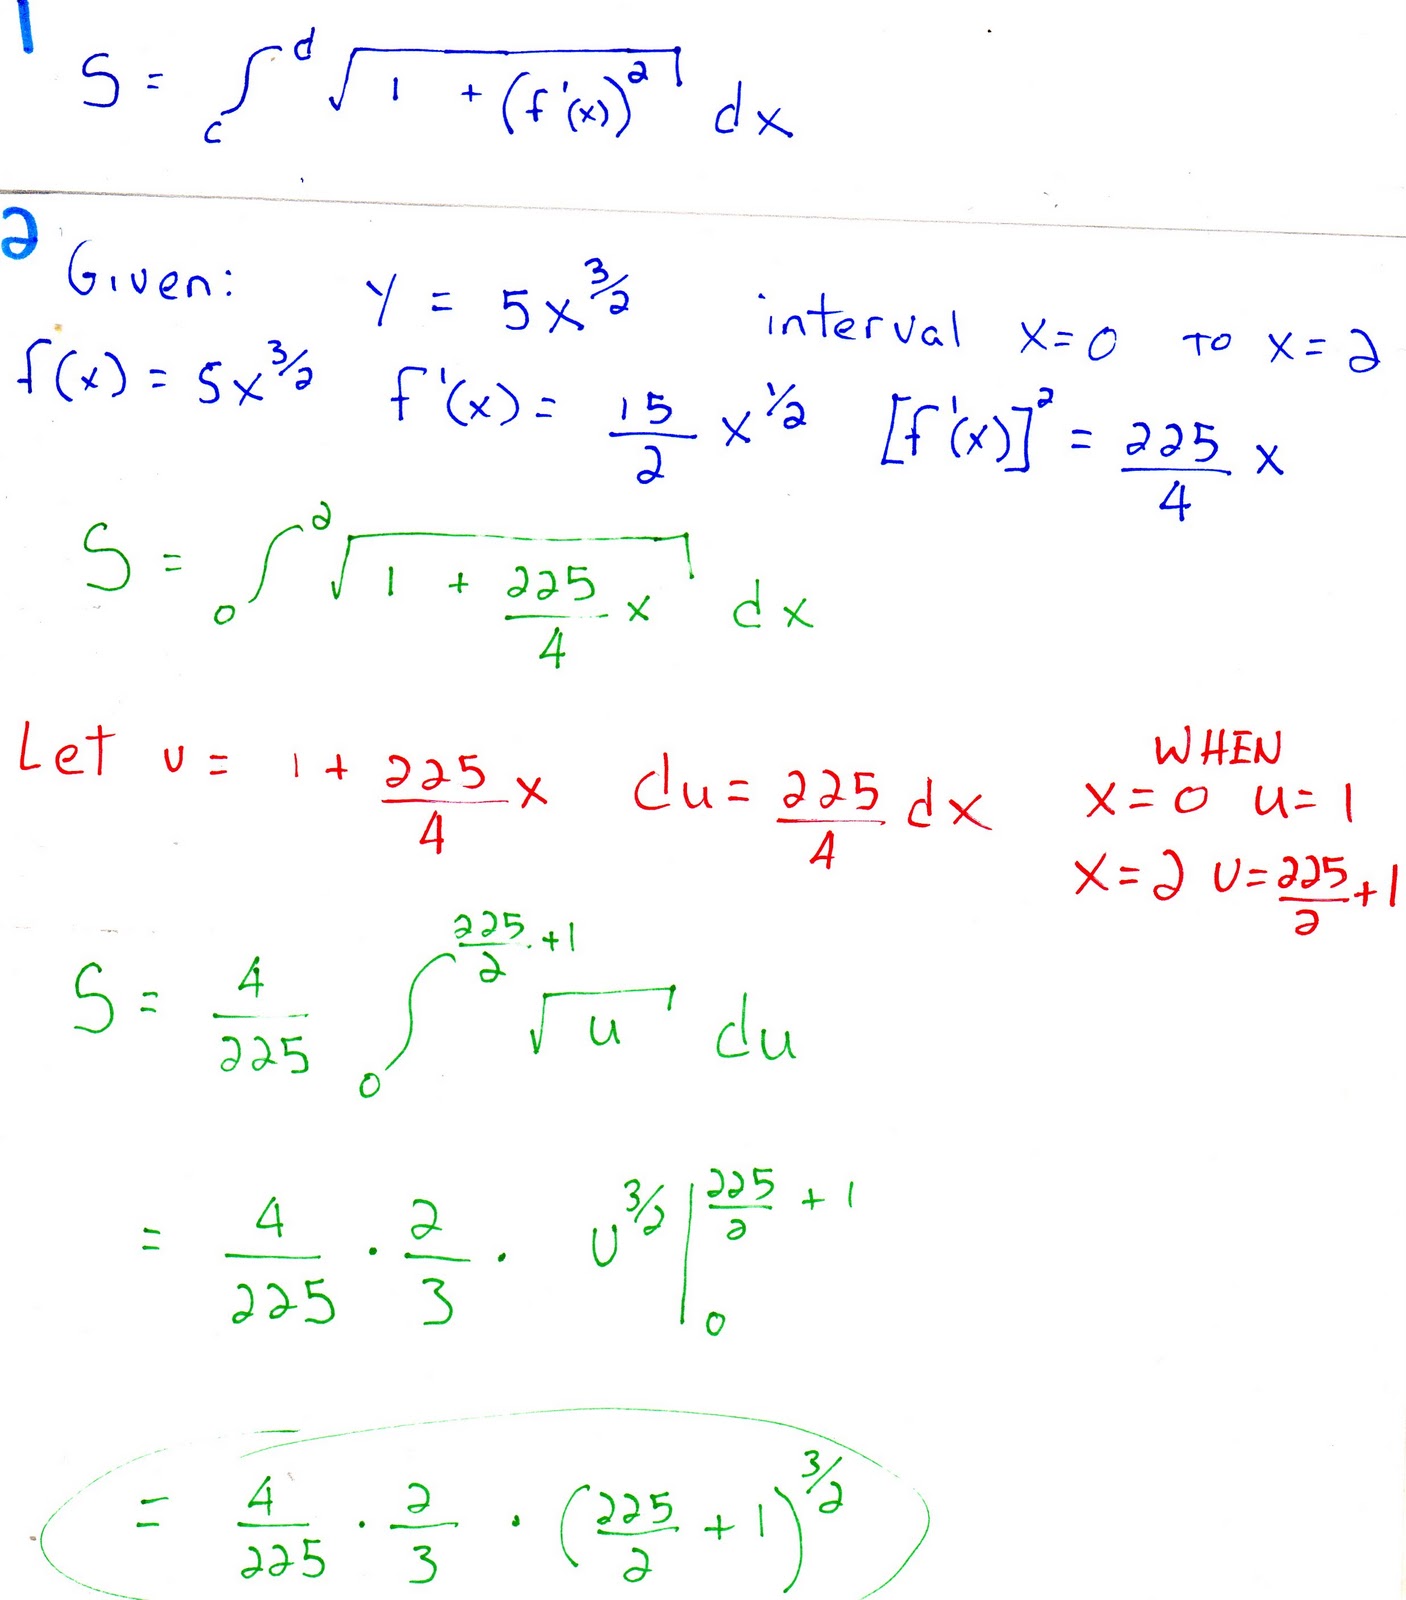 1
S = ∫_c^d √(1 + (f'(x))^2) dx
2
Given: y = 5x^(3/2) interval x=0 TO x=2
f(x) = 5x^(3/2) f'(x) = 15/2 x^(1/2) [f'(x)]^2 = 225/4 x
S = ∫_0^2 √(1 + 225/4 x) dx
WHEN
Let u = 1 + 225/4 x du = 225/4 dx x=0 u=1
x=2 u=225/2+1
S = 4/225 ∫_0^(225/2+1) √u du
= 4/225 · 2/3 · u^(3/2) |_0^(225/2+1)
= 4/225 · 2/3 · (225/2 + 1)^(3/2)